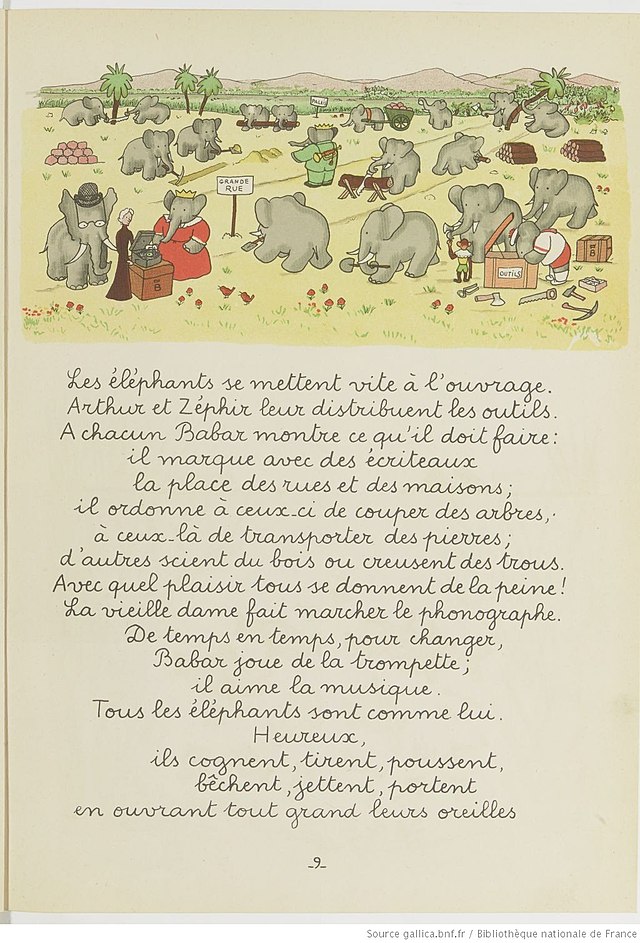 PALAIS
GRANDE
RUE
B
OUTILS
B
Les éléphants se mettent vite à l'ouvrage.
Arthur et Zéphir leur distribuent les outils.
A chacun Babar montre ce qu'il doit faire:
il marque avec des écriteaux
la place des rues et des maisons;
il ordonne à ceux-ci de couper des arbres,
à ceux-là de transporter des pierres;
d'autres scient du bois ou creusent des trous.
Avec quel plaisir tous se donnent de la peine!
La vieille dame fait marcher le phonographe.
De temps en temps, pour changer,
Babar joue de la trompette;
il aime la musique.
Tous les éléphants sont comme lui.
Heureux,
ils cognent, tirent, poussent,
bêchent, jettent, portent
en ouvrant tout grand leurs oreilles
_9_
Source gallica.bnf.fr / Bibliothèque nationale de France